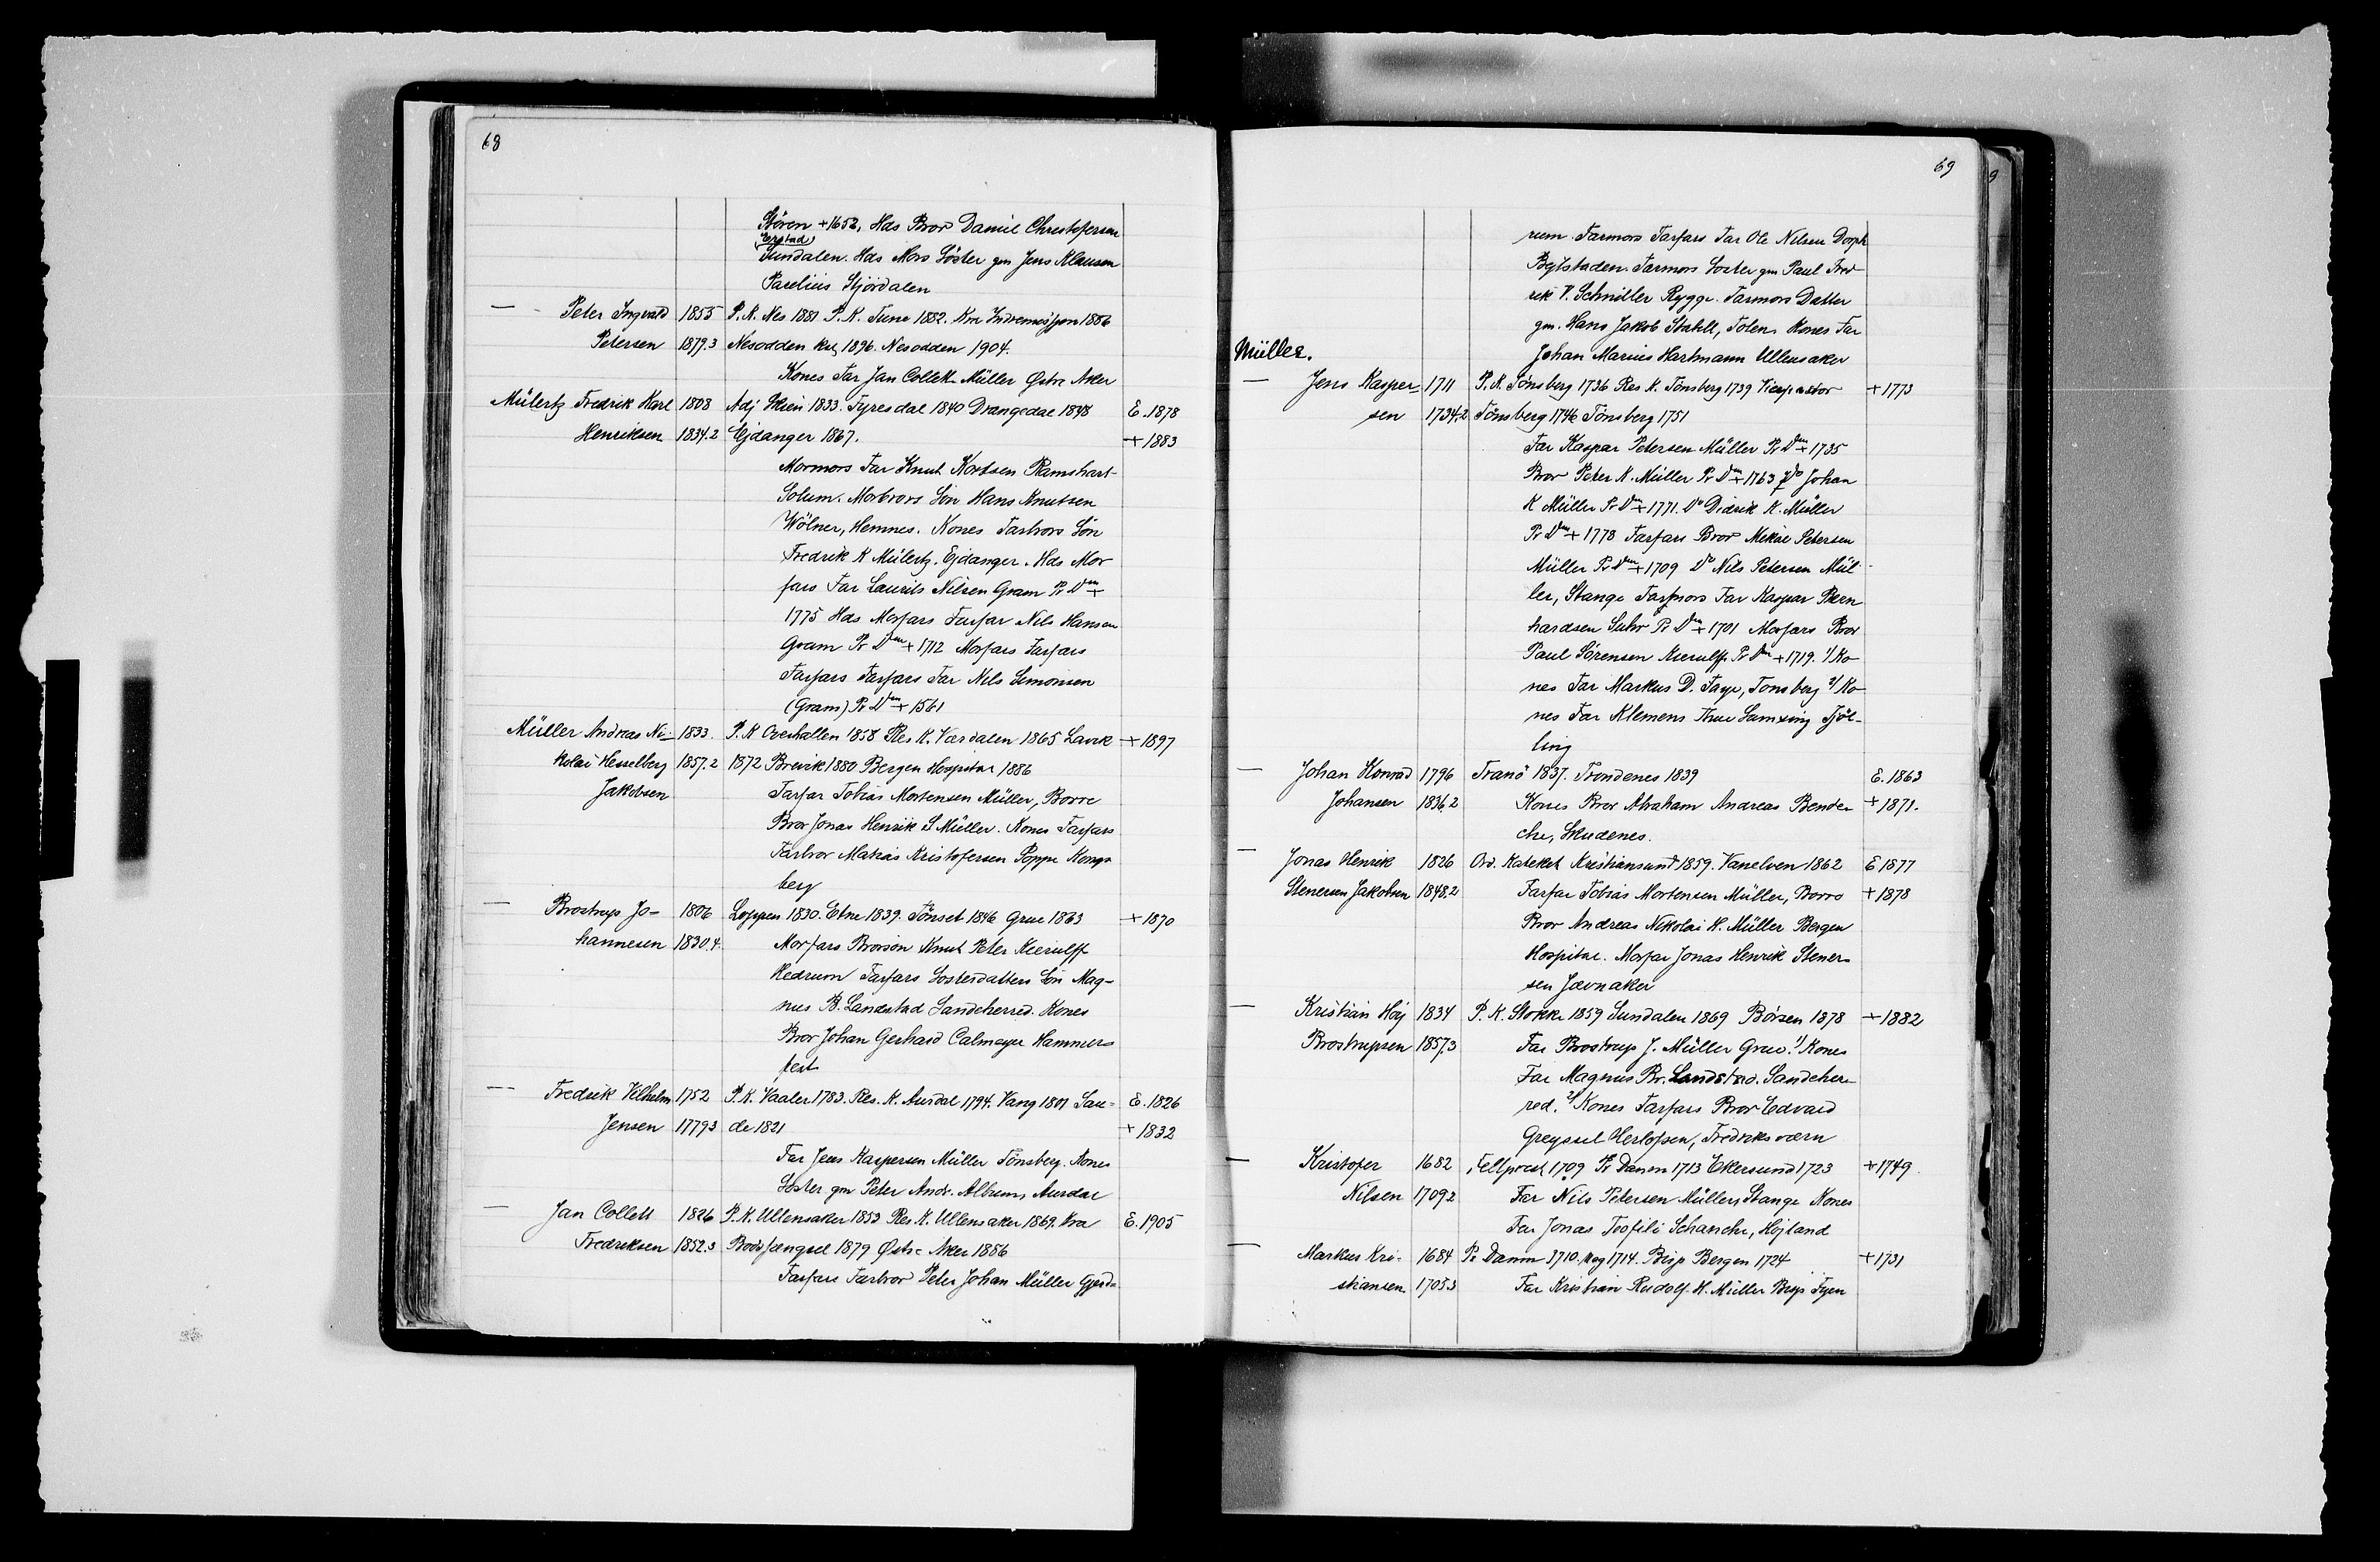 68
Stören +1652, Hds Bror Daniel Christofersen
(Erstad)
Sundalen. Hds Mors Söster gm Jens Klausen
Parelius Stjördalen
— Peter Ingvald 1855 P.K. Nes 1881 P.K. Tune 1882. Kra 1886
Petersen 1879.3 Nesodden kst 1896. Nesodden 1904.
Kones Far Jan Collett Müller Østre Aker
Mülertz Fredrik Karl 1808 Adj Skien 1833. Tyresdal 1840 Drangedal 1848 E. 1878
Henriksen 1834.2 Ejdanger 1867. + 1883
Mormors Far Knut Kortsen Ramshart
Solum. Morbrors Sön Hans Knutsen
Wölner, Hemnes. Kones Farbrors Sön
Fredrik K Mülertz. Ejdanger. Hds Mor
fars Far Laurits Nilsen Gram Pr Dm +
1775 Hds Morfars Farfar Nils Hansen
Gram Pr Dm + 1712 Morfars Farfars
Farfars Farfars Far Nils Simonsen
(Gram) Pr Dm + 1561
Müller Andreas Ni- 1833. P.K Overhallen 1858 Res K. Værdalen 1865 Lavik + 1897
kolai Hesselberg 1857.2 1872 Brevik 1880 Bergen Hospital 1886
Jakobsen Farfar Tobias Mortensen Müller, Borre
Bror Jonas Henrik S Müller. Kones Farfars
Farbror Matias Kristofersen Poppe Kongs
berg
— Brostrup Jo- 1806 Loppen 1830. Etne 1839. Tönset 1846 Grue 1863 + 1870
hannesen 1830.4. Morfars Brorsön Knut Peter Kierulff
Hedrum Farfars Søsterdatters Sön Mag-
nus B. Landstad Sandeherred. Kones
Bror Johan Gerhard Calmeyer Hammer-
fest
— Fredrik Vilhelm 1752 P.K. Vaaler 1783. Res. K. Aurdal 1794. Vang 1801 Sau- E. 1826
Jensen 1779.3 de 1821 + 1832
Far Jens Kaspersen Müller Tönsberg. Kones
Söster gm Peter Andr. Album, Aurdal
— Jan Collett 1826 P.K. Ullensaker 1853 Res K. Ullensaker 1869. Kra E. 1905
Fredriksen 1852.3 Bodsfængsel 1879 Østre Aker 1886
Farfars Farbror Peter Johan Müller Gjerd-
69
rum. Farmors Farfars Far Ole Nilsen Dorph
Bglstaden. Farmors Soster gm Paul Fred-
rik V. Schmiller Rygge. Farmors Datter
gm. Hans Jakob Stahll, Toten. Kones Far
Johan Marius Hartmann Ullensaker
Müller.
— Jens Kasper- 1711 P.K. Tönsberg 1736 Res K. Tönsberg 1739 Vicepastor + 1773
sen 1734.2 Tönsberg 1746 Tönsberg 1751
Far Kaspar Petersen Müller Pr Dm + 1735
Bror Peter K. Müller Pr Dm + 1763 Do Johan
K Müller Pr Dm + 1771. Do Didrik K. Müller
Pr Dm + 1778 Farfars Bror Mikal Petersen
Müller Pr Dm + 1709 Do Nils Petersen Mül-
ler, Stange Farmors Far Kaspar Bern
hardsen Suhr Pr Dm + 1701 Morfars Bror
Paul Sörensen Kierulff Pr Dm + 1719. 1/ Ko-
nes Far Markus D. Faye, Tonsberg 2/ Ko-
nes Far Klemens Thue Samsing Tjöl-
ling
— Johan Konrad 1796 Tranö 1837. Trondenes 1839 E. 1863
Johansen 1836.2 Kones Bror Abraham Andreas Bende- + 1871.
che, Skudenes.
— Jonas Henrik 1826 Ord. Kateket Kristiansund 1859. Vanelven 1862 E 1877
Stenersen Jakobsen 1848.2 Farfar Tobias Mortensen Müller, Borre + 1878
Bror Andreas Nikolai H. Müller Bergen
Hospital. Morfar Jonas Henrik Stener-
sen Jævnaker
— Kristian Höy 1834 P.K. Stokke 1859 Sundalen 1869 Börsen 1878 + 1882
Brostrupsen 1857.3 Far Brostrup J. Müller Grue. 1/ Kones
Far Magnus Br. Landstad. Sandeher-
red. 2/ Kones Farfars Bror Edvard
Herlofsen, Fredriksværn
— Kristofer 1682 Feltprest 1709 Pr Danm 1713 Ekersund 1723 + 1749.
Nilsen 1709.2 Far Nils Petersen Müller, Stange Kones
Far Jonas Teofili Schanche, Höjland
— Markus Kri- 1684 Pr Danm 1710. Mag 1714. Bisp Bergen 1724 + 1731
stiansen 1705.3 Far Kristian Rudolf. H. Müller Bisp Fyen